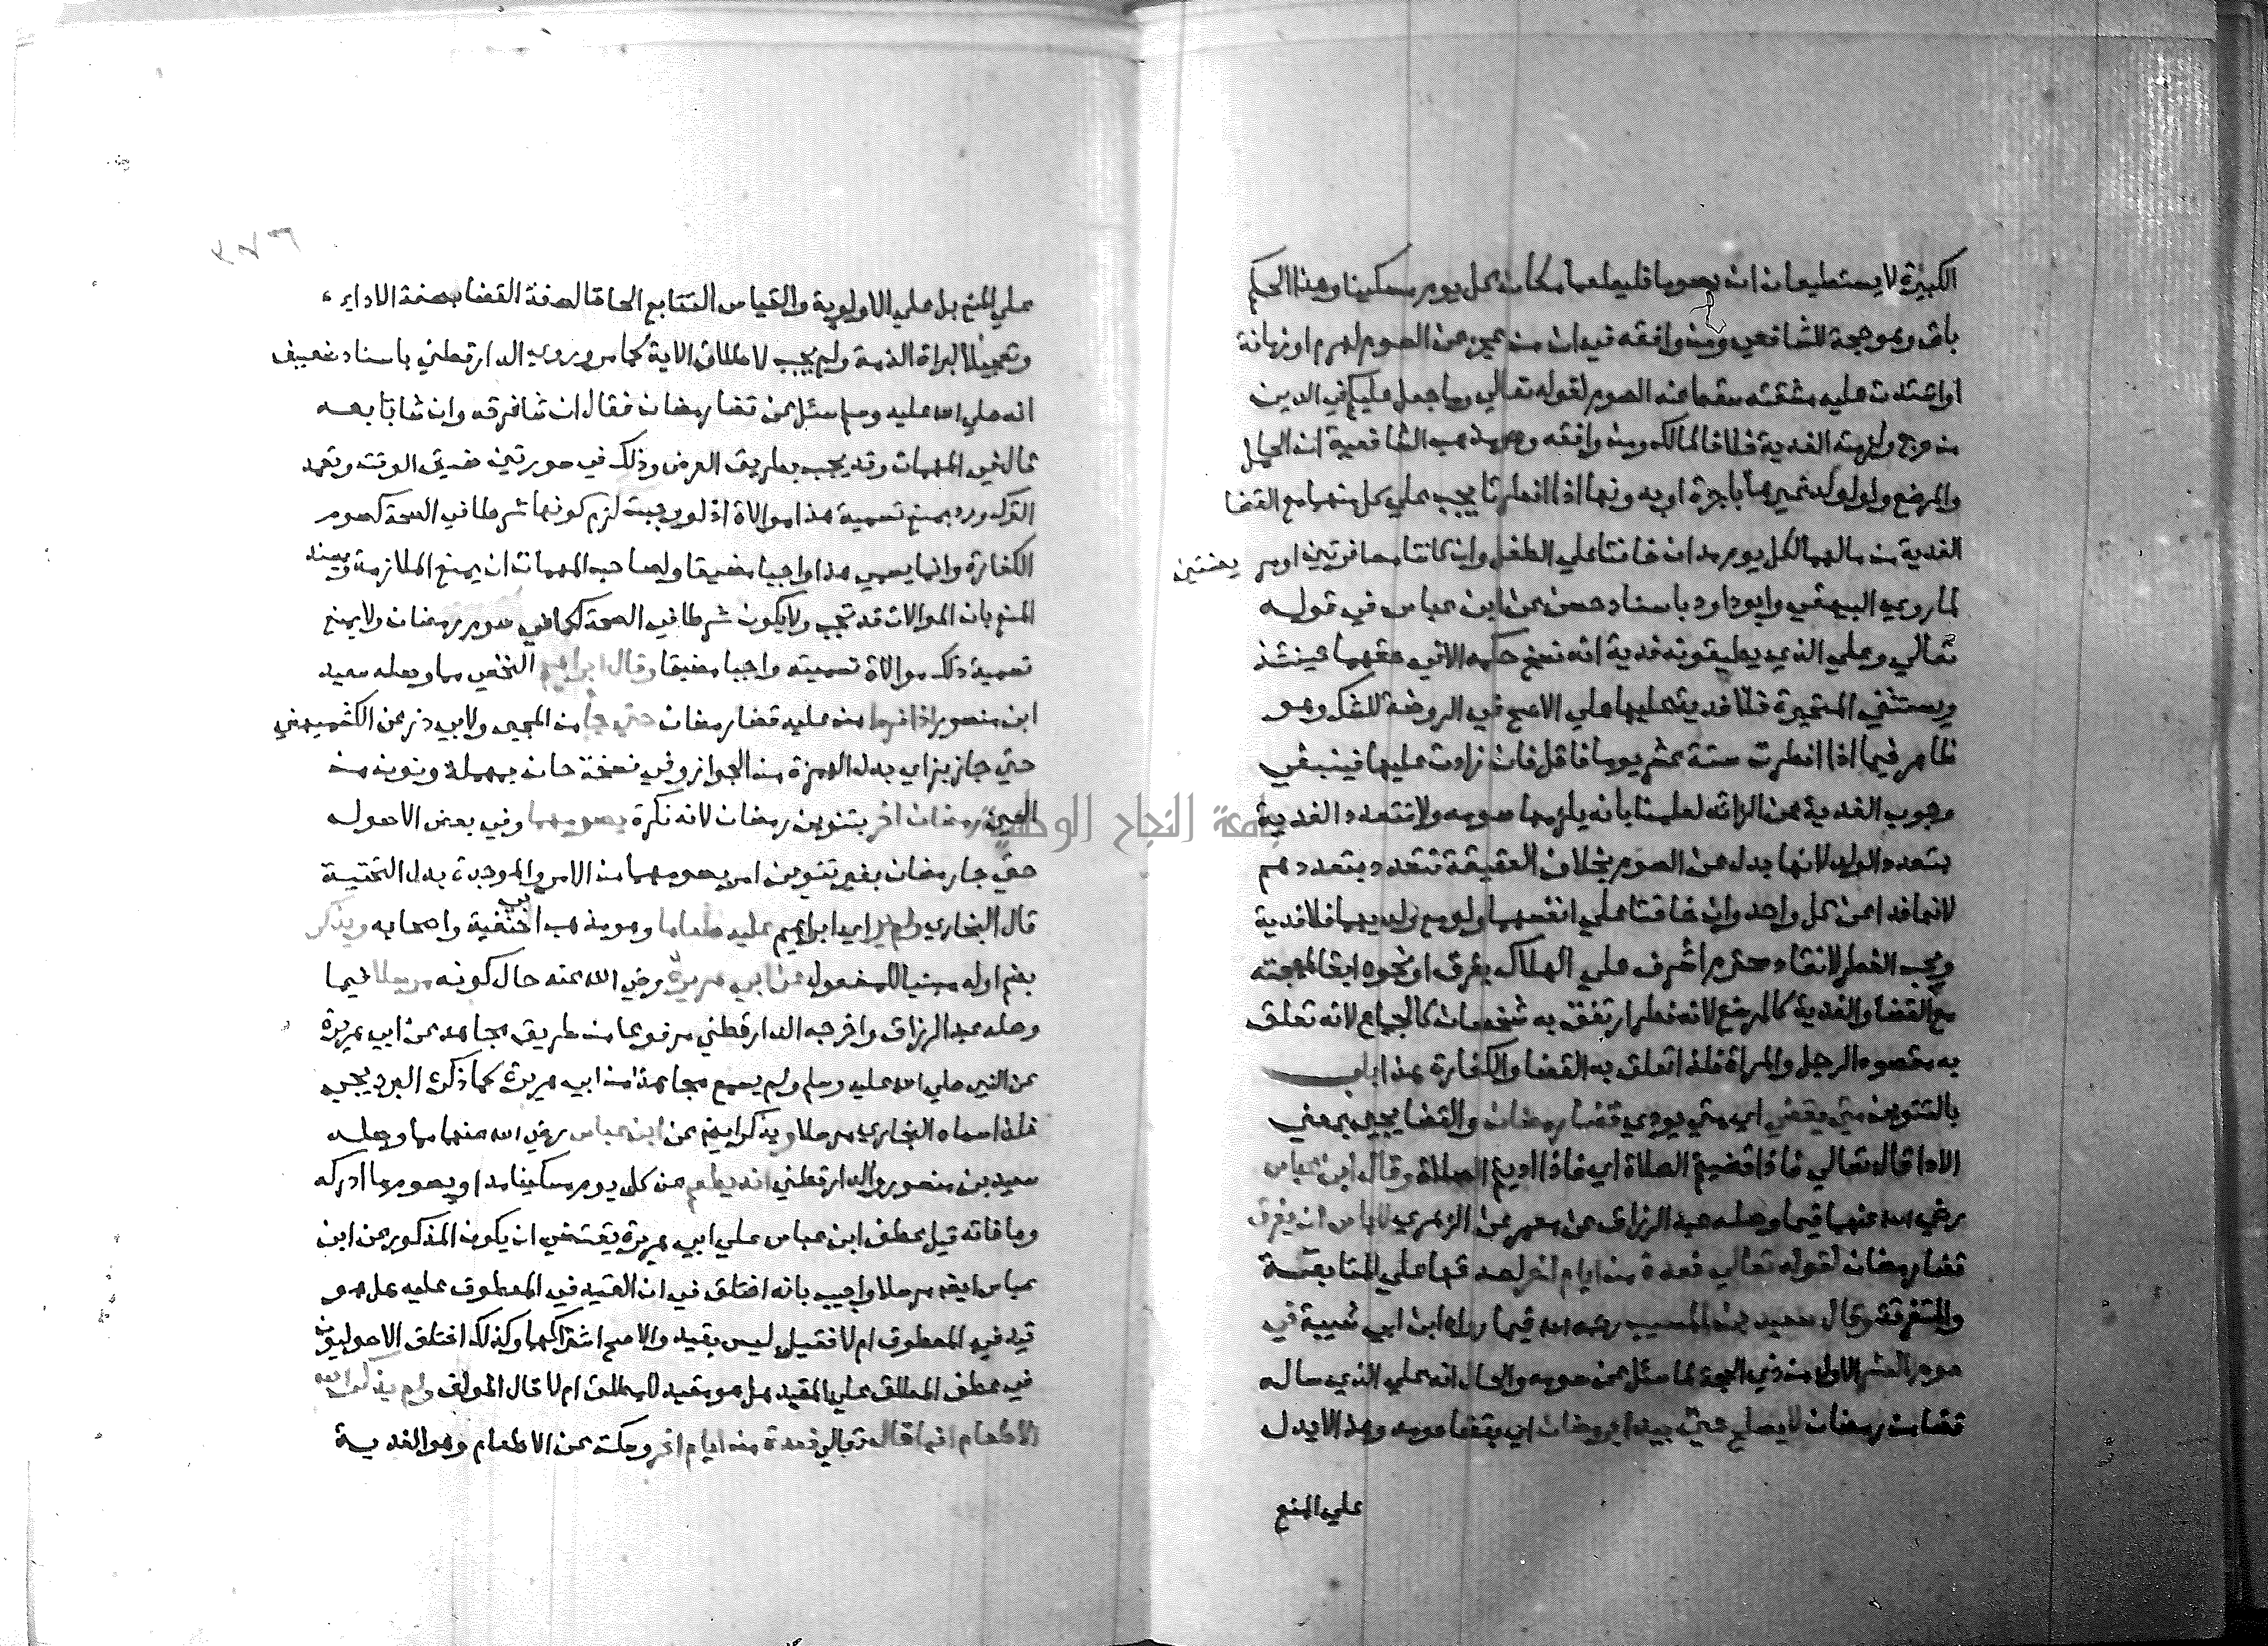 الكبيرة لا يستطيعان ان يصوما فليطعما مكان كل يوم مسكينا وهذا الحكم
باق وهو حجة للشافعي ومن وافقه في ان من عجز عن الصوم لهرم او زمانة
او اشتدت عليه مشقته سقط عنه الصوم لقوله تعالي وما جعل عليكم في الدين
من حرج ولزمته الفدية خلافا لمالك ومن وافقه ومذهب الشافعية ان الحامل
والمرضع ولو لولد غيرها باجرة او بدونها اذا افطرتا يجب علي كل منهما مع القضا
الفدية من مالهما لكل يوم مد ان خافتا علي الطفل وان كانتا مسافرتين او مريضتين
لما روي البيهقي وابو داود باسناد حسن عن ابن عباس في قوله
تعالي وعلي الذين يطيقونه فدية انه نسخ حكمه الا في حقهما حينئذ
ويستثني المتحيرة فلا فدية عليها علي الاصح في الروضة للشك وهو
ظاهر فيما اذا افطرت ستة عشر يوما فاقل فان زادت عليها فينبغي
وجوب الفدية عن الزائد لعلمنا بانه يلزمها صومه ولا تتعدد الفدية
بتعدد الولد لانها بدل عن الصوم بخلاف العقيقة تتعدد بتعددهم
لانها فدا عن كل واحد وان خافتا علي انفسهما ولو مع ولديهما فلا فدية
ويجب الفطر لانقاذ محترم اشرف علي الهلاك بغرق او نحوه ابقا لمهجته
مع القضا والفدية كالمرضع لانه فطر ارتفق به شخصان كالجماع لانه تعلق
به مقصود الرجل والمراة فلذا تعلق به القضا والكفارة هذا باب
بالتنوين متي يقضي اي متي يودي قضا رمضان والقضا يجي بمعني
الادا قال تعالي فاذا قضيتم الصلاة اي فاذا اديتم الصلاة وقال ابن عباس
رضي الله عنهما فيما وصله عبد الرزاق عن معمر عن الزهري لا باس ان يفرق
قضا رمضان لقوله تعالي فعدة من ايام اخر لصدقها علي المتتابعة
والمتفرقة وقال سعيد بن المسيب رحمه الله فيما رواه ابن ابي شيبة في
صوم العشر الاول من ذي الحجة لما سئل عن صومه والحال انه علي الذي ساله
قضا من رمضان لا يصلح حتي يبدا برمضان اي بقضا صومه وهذا لا يدل
علي المنع
علي المنع بل علي الاولوية والقياس التتابع الحاقا لصفة القضا بصفة الادا
وتعجيلا لبراة الذمة ولم يجب لاطلاق الاية كما مر وروي الدارقطني باسناد ضعيف
انه صلي الله عليه وسلم سئل عن قضا رمضان فقال ان شا فرقه وان شا تابعه
قال في المهمات وقد يجب بطريق العرض وذلك في صورتين ضيق الوقت وتعمد
الترك ورد بمنع تسمية هذا موالاة اذ لو وجبت لزم كونها شرطا في الصحة كصوم
الكفارة وانما يسمي هذا واجبا مضيقا ولصاحب المهمات ان يمنع الملازمة ويسند
المنع بان الموالات قد تجب ولا يكون شرطا في الصحة كما في صوم رمضان ولا يمنع
تسمية ذلك موالاة تسميته واجبا مضيقا وقال ابراهيم النخعي مما وصله سعيد
ابن منصور اذا فرط من عليه قضا رمضان حتي جا من المجي ولابي ذر عن الكشميهني
حتي جاز بزاي بدل الهمزة من الجواز وفي نسخة حان بمهملة ونون من
الحين رمضان اخر بتنوين رمضان لانه نكرة يصومهما وفي بعض الاصول
حتي جا رمضان بغير تنوين امر بصومهما من الامر والموحدة بدل التحتية
قال البخاري ولم ير اي ابراهيم عليه طعاما وهو مذهب الحنفية واصحابه ويذكر
بضم اوله مبنيا للمفعول عن ابي هريرة رضي الله عنه حال كونه مرسلا فيما
وصله عبد الرزاق واخرجه الدارقطني مرفوعا من طريق مجاهد عن ابي هريرة
عن النبي صلي الله عليه وسلم ولم يسمع مجاهد من ابي هريرة كما ذكره البرديجي
فلذا سماه البخاري مرسلا ويذكر ايضا عن ابن عباس رضي الله عنهما مما وصله
سعيد بن منصور والدارقطني انه يطعم عن كل يوم مسكينا مدا ويصوم ما ادركه
وما فاته قيل عطف ابن عباس علي ابي هريرة يقتضي ان يكون المذكور عن ابن
عباس ايضا مرسلا واجيب بانه اختلف في ان القيد في المعطوف عليه هل هو
قيد في المعطوف ام لا فقيل ليس بقيد والاصح اشتراكهما وكذلك اختلف الاصوليون
في عطف المطلق علي المقيد هل هو مقيد للمطلق ام لا قال المولف ولم يذكر الله
الاطعام انما قال تعالي فعدة من ايام اخر وسكت عن الاطعام وهو الفدية
جامعة النجاح الوطنية